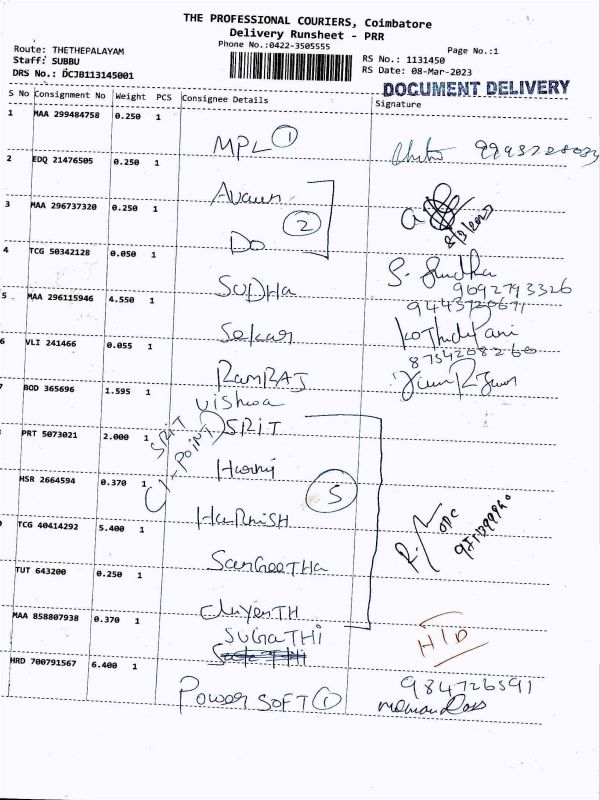 THE PROFESSIONAL COURIERS, Coimbatore
Delivery Runsheet - PRR
Phone No.:0422-3505555
Page No.:1
Route: THETHEPALAYAM
Staff: SUBBU
DRS No.: DCJB113145001
RS No.: 1131450
RS Date: 08-Mar-2023
DOCUMENT DELIVERY
S No Consignment No Weight PCS Consignee Details Signature
1 MAA 299484758 0.250 1
MPL 1
2 EDQ 21476505 0.250 1
3 MAA 296737320 0.250 1
DO 2
8/3/2023
4 TCG 50342128 0.050 1
SUDHA S. Sudha
9692793326
5 MAA 296115946 4.550 1
9443720671
Sekar
6 VLI 241466 0.055 1
8754208260
RamRAJ
7 BOD 365696 1.595 1
Vishwa
PRT 5073021 2.000 1
SRIT SRIT
HSR 2664594 0.370 1
5
TCG 40414292 5.400 1
HARNISH
SanGeeTHa
TUT 643200 0.250 1
MAA 858807938 0.370 1
SUGATHI
H/D
HRD 700791567 6.400 1
984726591
Power SOFT 1